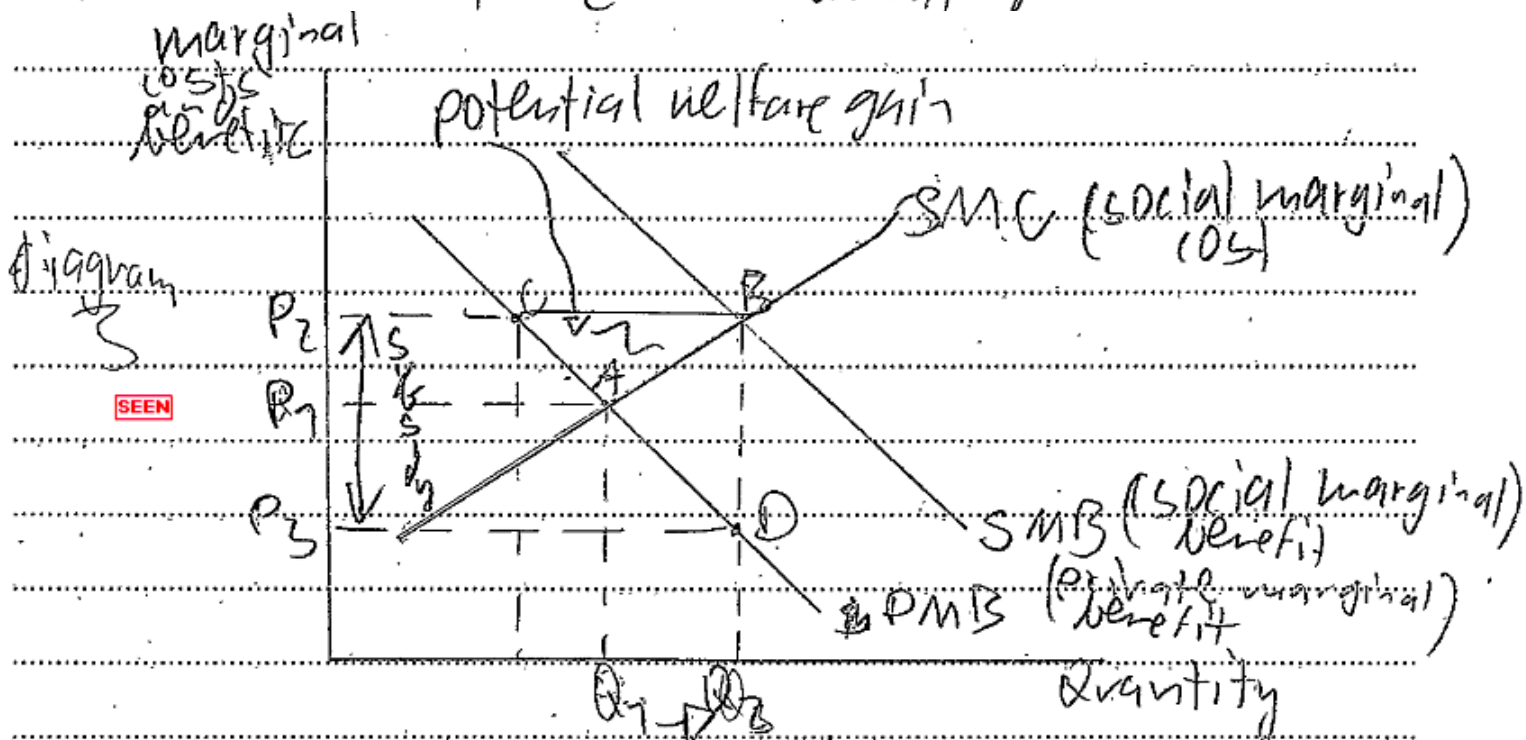 marginal
costs
and
benefits
potential welfare gain
SMC (social marginal)
cos)
diagram
3
P2
C
B
s
u
b
s
i
dy
A
P1
SEEN
P3
D
SMB (social marginal)
benefit
PMB (private marginal)
benefit
Q1 → Q2
Quantity